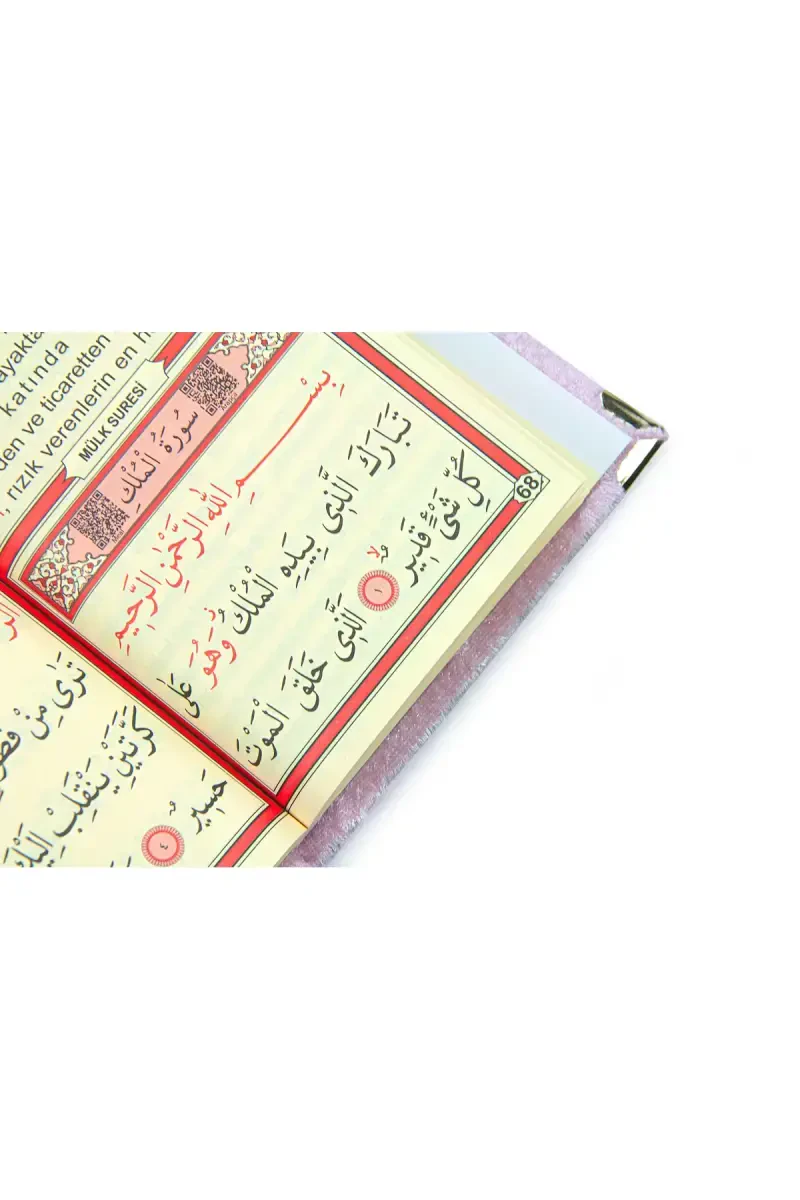 katında
den ve ticaretten
, rızık verenlerin en h
MÜLK SURESİ
سُورَةُ الْمُلْكِ
68
بِسْمِ اللّٰهِ الرَّحْمٰنِ الرَّحِيمِ
تَبَارَكَ الَّذِى بِيَدِهِ الْمُلْكُ وَهُوَ عَلٰى
كُلِّ شَىْءٍ قَدِيرٌ ۙ ١ اَلَّذِى خَلَقَ الْمَوْتَ
تَرٰى مِنْ
كَرَّتَيْنِ يَنْقَلِبْ
حَسِيرٌ ٤